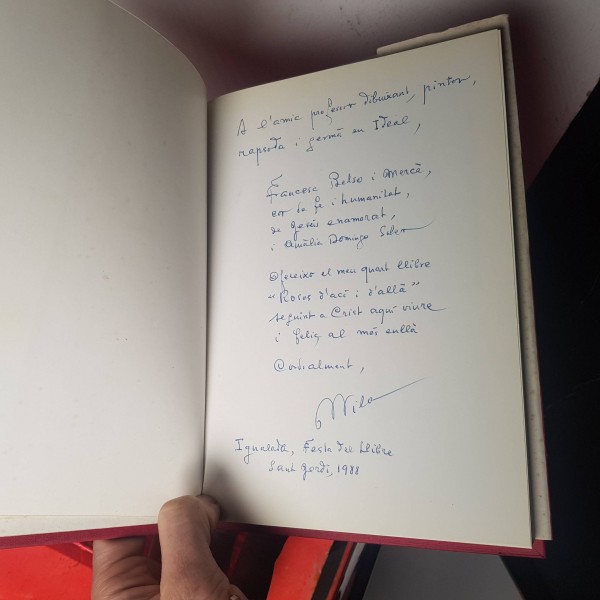 A l'amic professor dibuixant, pintor,
rapsoda i germà en Ideal,
Francesc Belso i Mercè,
cor de fe i humanitat,
de Jesús enamorat,
i Amàlia Domingo Soler
Ofereixo el meu quart llibre
"Roses d'ací i d'allà"
seguint a Crist aquí viure
i feliç al més enllà
Cordialment,
Igualada, Festa del Llibre
Sant Jordi, 1988